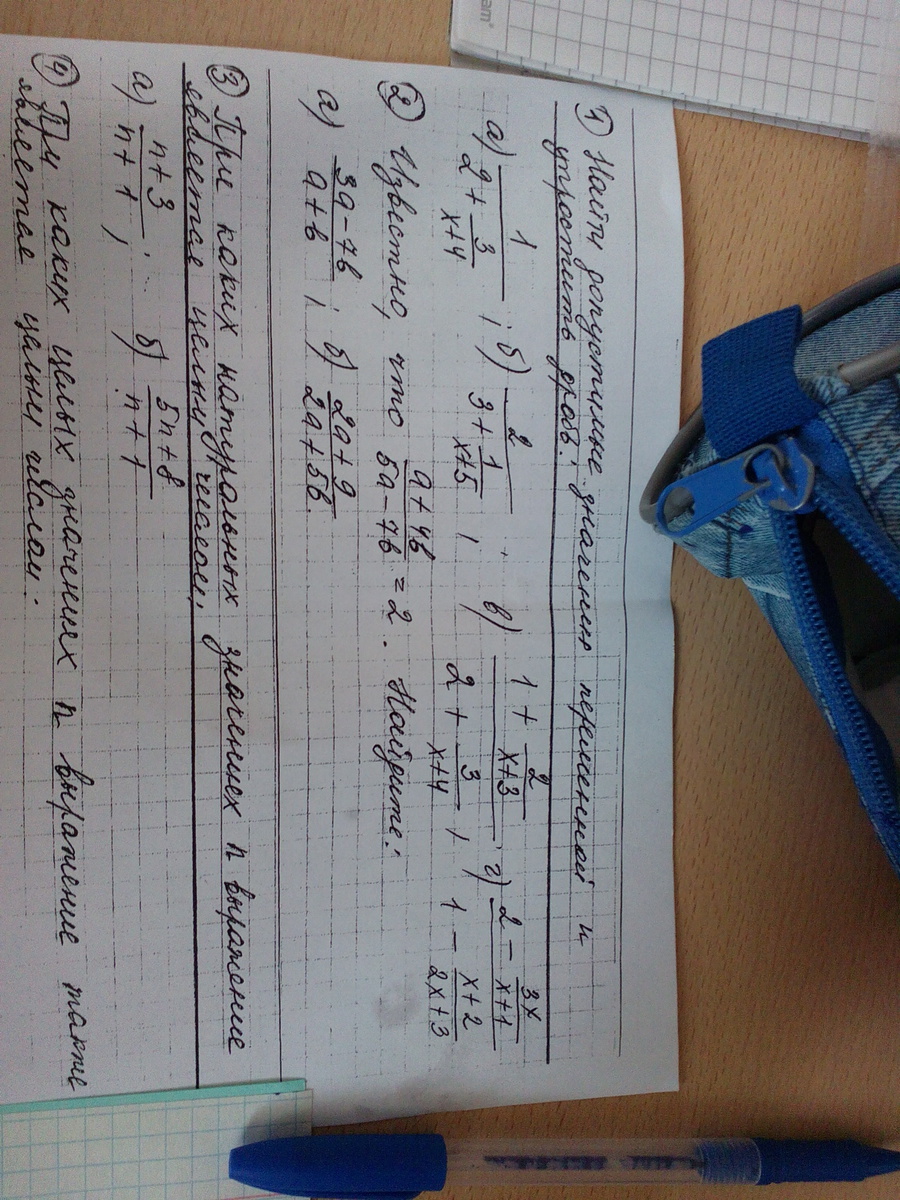 1) Найти допустимые значения переменной и
упростить дробь:
а) 1/(2 + 3/(x+4)) ; б) 2/(3 + 1/(x+5)) , в) (1 + 2/(x+3))/(2 + 3/(x+4)) , г) (2 - 3x/(x+1))/(1 - (x+2)/(2x+3))
2) Известно, что (a + 4b)/(5a - 7b) = 2. Найдите:
а) (3a - 7b)/(a + b) ; б) (2a + 9)/(2a + 5b)
3) При каких натуральных значениях n выражение
является целым числом:
а) (n + 3)/(n + 1) , б) (5n + 8)/(n + 1)
4) При каких целых значениях n выражение также
является целым числом: